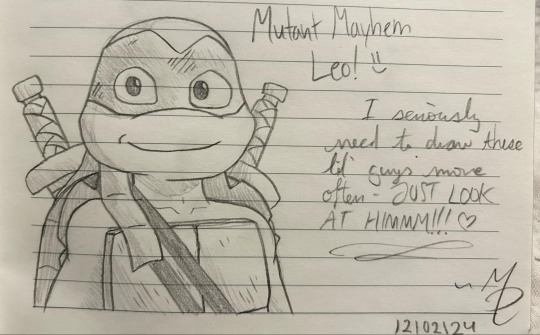 Mutant Mayhem
Leo! :)
I seriously
need to draw these
lil' guys more
often - JUST LOOK
AT HIMMM!!! ♡
12/02/24